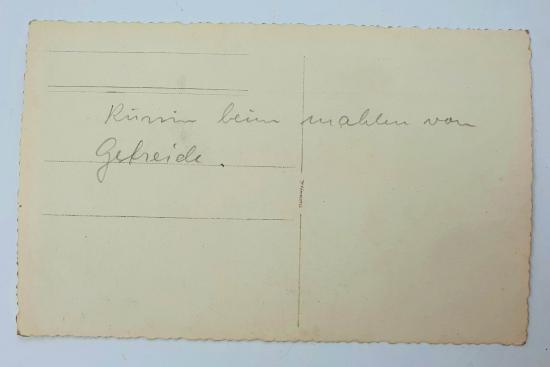 Russin beim mahlen von
Getreide.